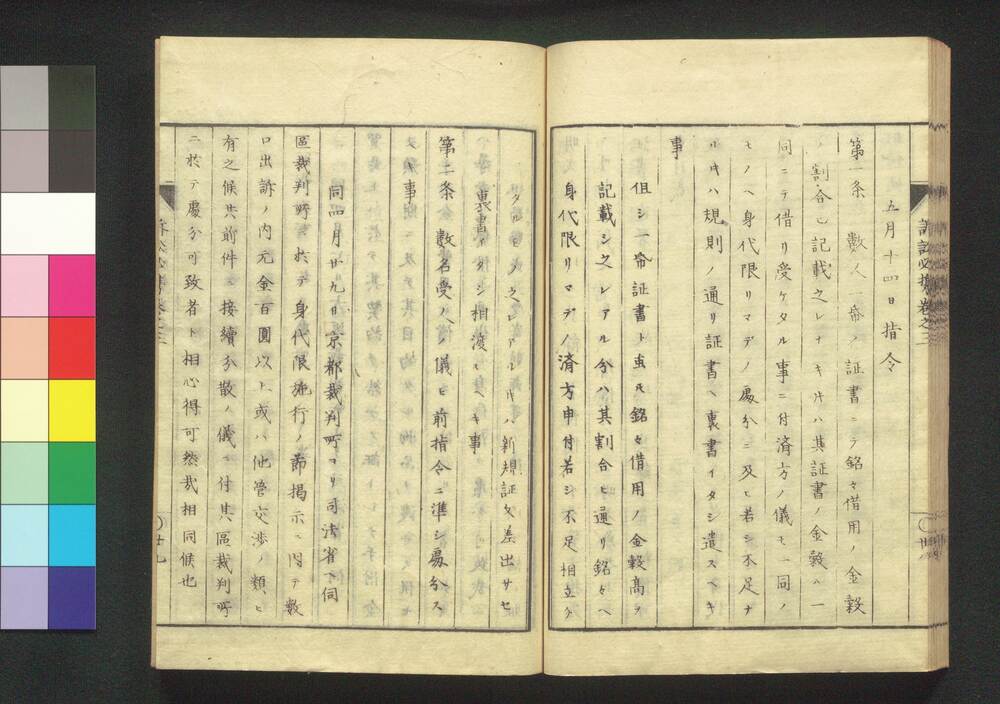 五月十四日指令
第一条　数人一帋ノ証書ニテ銘々借用ノ金穀
ノ割合ヒ記載之レナキ片ハ其証書ノ金穀ハ一
同ニテ借リ受ケタル事ニ付済方ノ儀モ一同ノ
モノヘ身代限リマデノ処分ニ及ヒ若シ不足ナ
ル片ハ規則ノ通リ証書ヘ裏書イタシ遣スヘキ
事
但シ一帋証書ト虽𪜈銘々借用ノ金穀高ヲ
記載シ之レアル分ハ其割合ヒ通リ銘々ヘ
身代限リマデノ済方申付若シ不足相立
之レアル片ハ新規証文差出サセ
裏書イタシ相渡スヘキ事
第二条　数名受人ノ儀モ前指令ニ準シ処分ス
ヘキ事
同四月廿九日京都裁判所ヨリ司法省ヘ伺
区裁判所ニ於テ身代限施行ノ節掲示ニ因テ数
口出訴ノ内元金百圓以上或ハ他管交渉ノ類ヒ
有之候共前件ニ接続分散ノ儀ニ付其區裁判所
ニ於テ處分可致者ト相心得可然哉相伺候也
訴訟必携巻之二